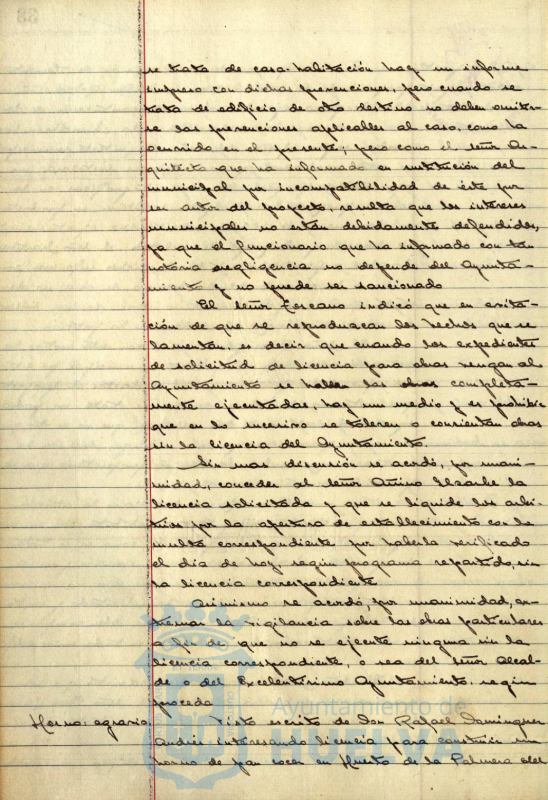 se trata de casa-habitación hay un informe
impreso con dichas prevenciones, pero cuando se
trata de edificio de otro destino no deben omitir-
se las prevenciones aplicables al caso, como ha
ocurrido en el presente; pero como el señor Ar-
quitecto que ha informado en sustitución del
municipal por incompatibilidad de éste por
ser autor del proyecto, resulta que los intereses
municipales no están debidamente defendidos,
ya que el funcionario que ha informado con tan
notoria negligencia no depende del Ayunta-
miento y no puede ser sancionado
El señor Toscano indicó que en evita-
ción de que se reproduzcan los hechos que se
lamentan, es decir que cuando los expedientes
de solicitud de licencia para obras vengan al
Ayuntamiento se hallen las obras completa-
mente ejecutadas, hay un medio y es prohibir
que en lo sucesivo se toleren o consientan obras
sin la licencia del Ayuntamiento.
Sin mas discusión se acordó, por unani-
midad, conceder al señor la
licencia solicitada y que se liquide los arbi-
trios por la apertura de establecimiento con la
multa correspondiente por haberla verificado
el día de hoy, según programa repartido, sin
la licencia correspondiente
Asimismo se acordó, por unanimidad, ex-
tremar la vigilancia sobre las obras particulares
a fin de que no se ejecute ninguna sin la
licencia correspondiente, o sea del señor Alcal-
de o del Excelentísimo Ayuntamiento, según
proceda
Horno: agrario. Visto escrito de Don Rafael Domínguez
Andrés interesando licencia para construir un
horno de pan cocer en Huerto de la Palmera del
Ayuntamiento de
HUELVA